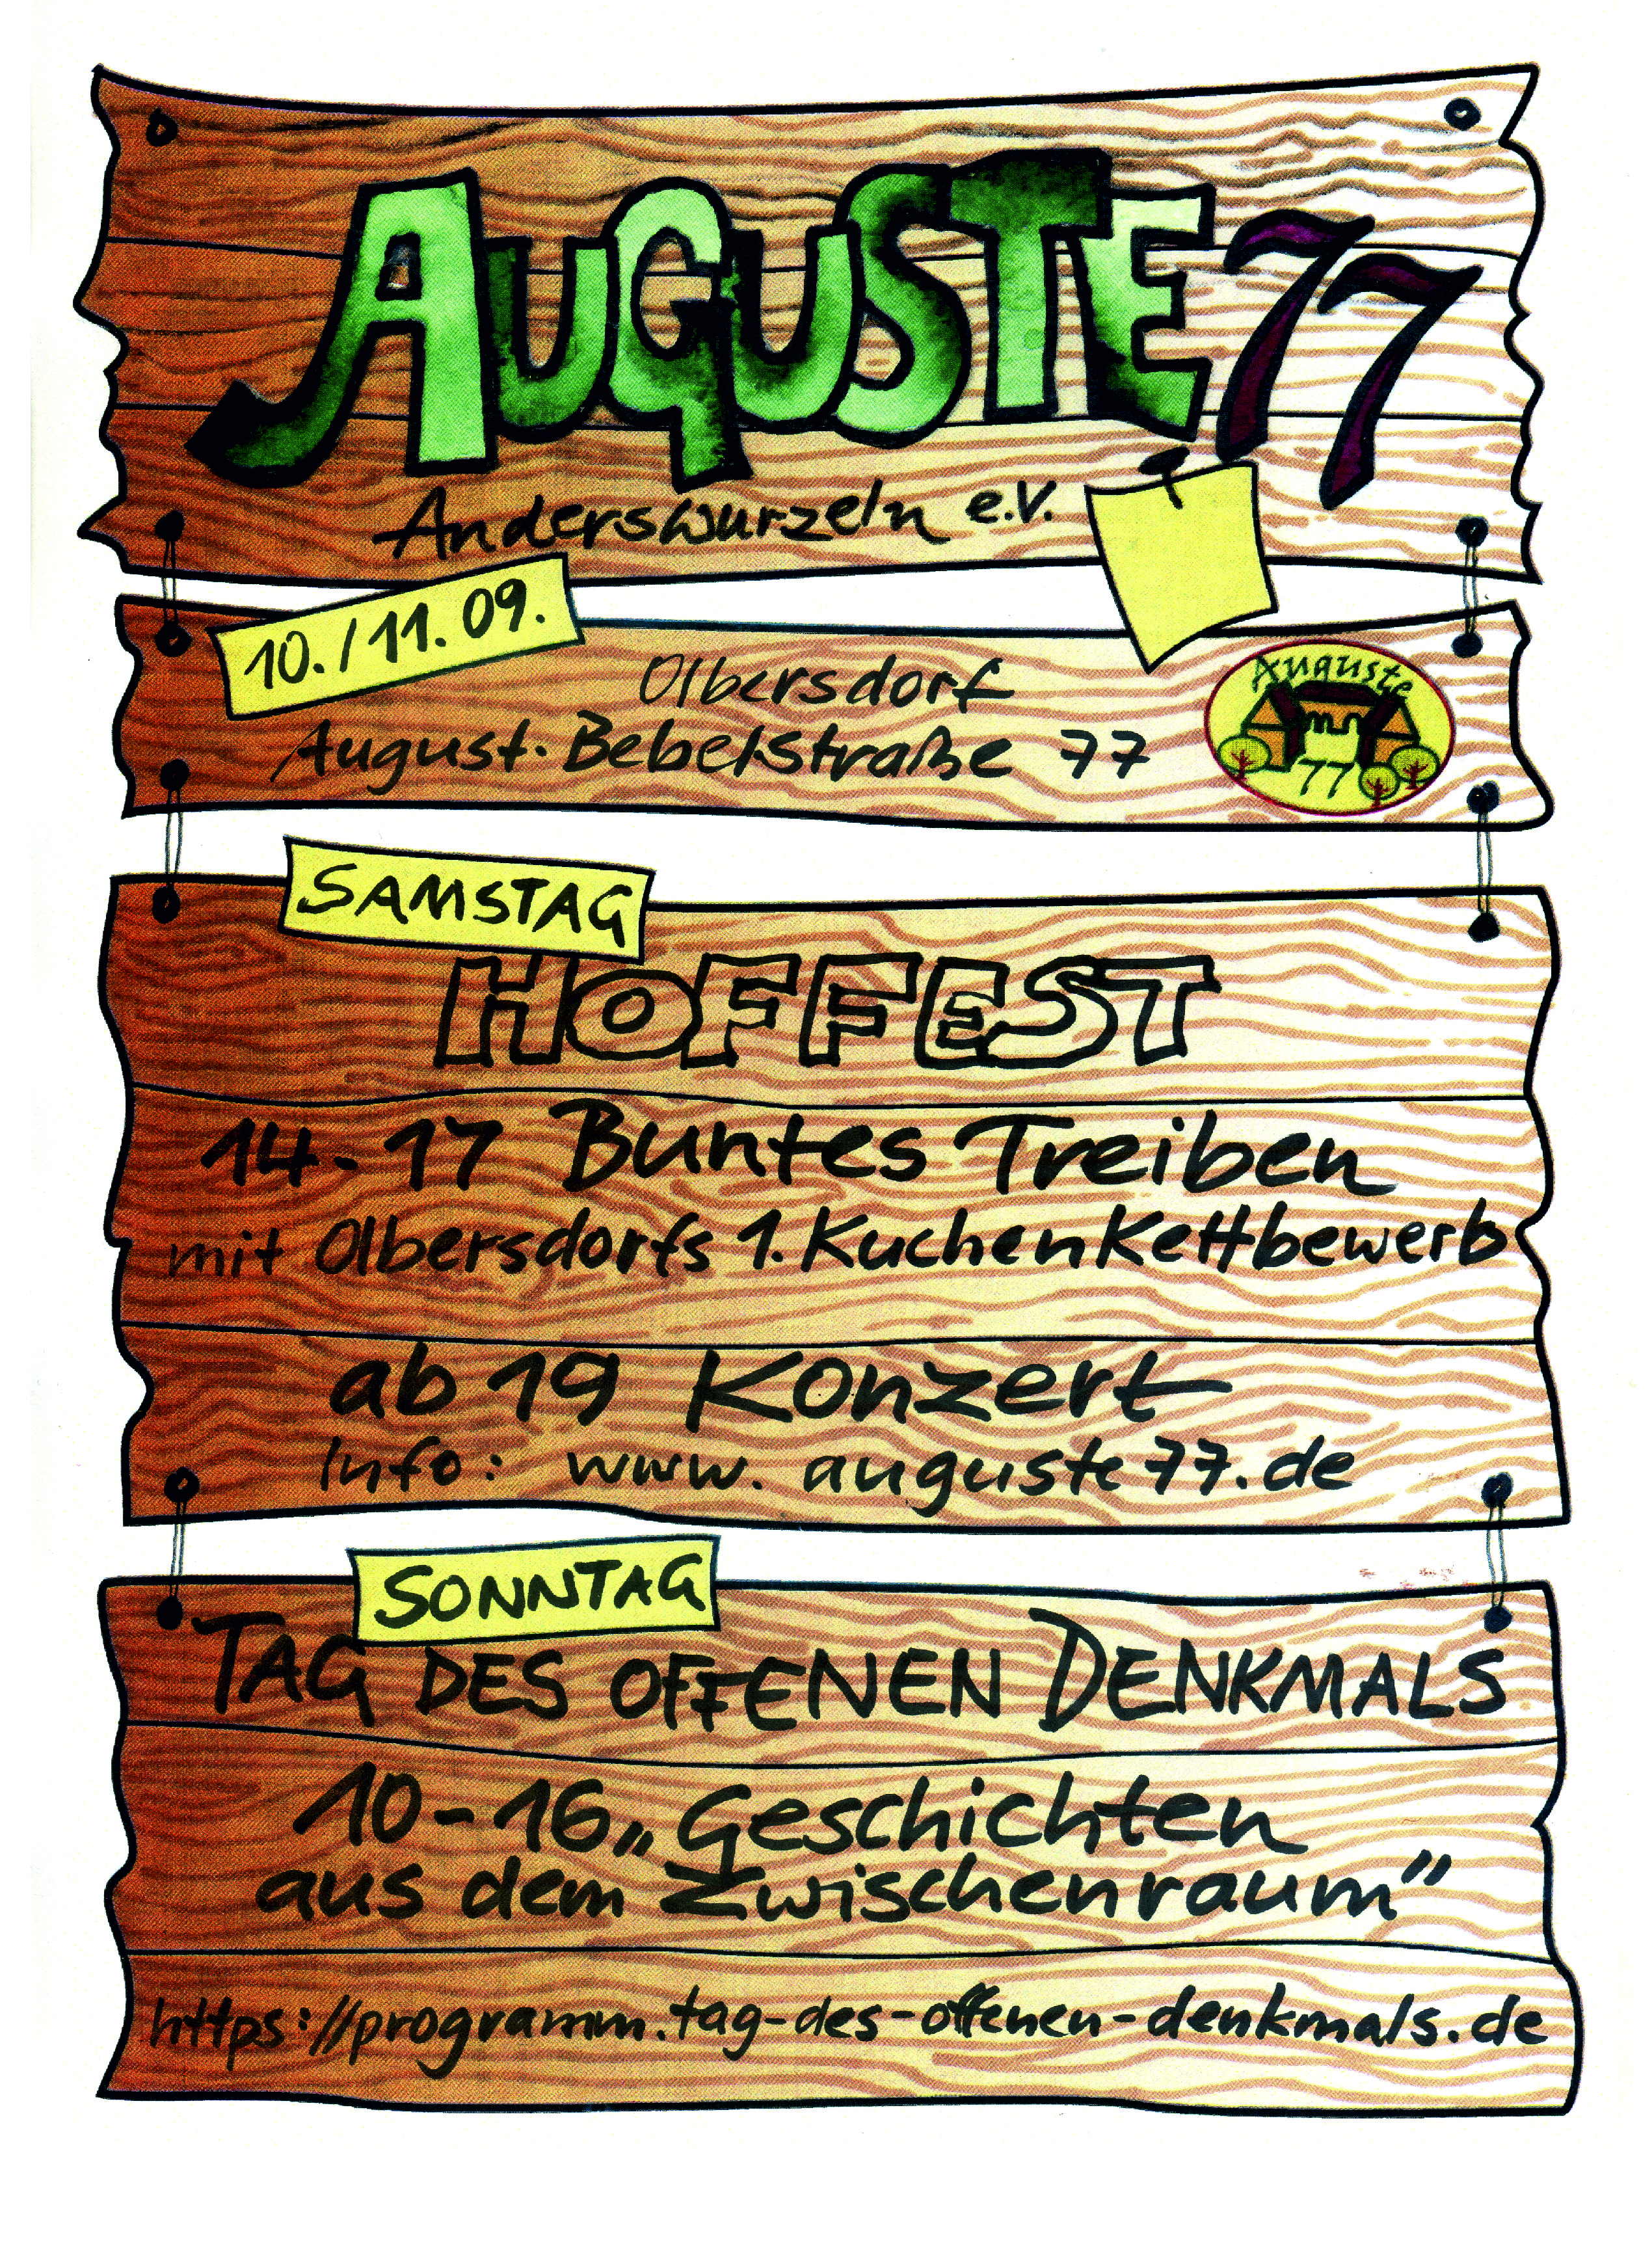 AUGUSTE 77
Anderswurzeln e.V.
10./11. 09.
Olbersdorf
August-Bebelstraße 77
Auguste
77
SAMSTAG
HOFFEST
14-17 Buntes Treiben
mit Olbersdorfs 1. KuchenKettbewerb
ab 19 Konzert
Info: www.auguste77.de
SONNTAG
TAG DES OFFENEN DENKMALS
10-16 „Geschichten
aus dem Zwischenraum"
https://programm.tag-des-offenen-denkmals.de